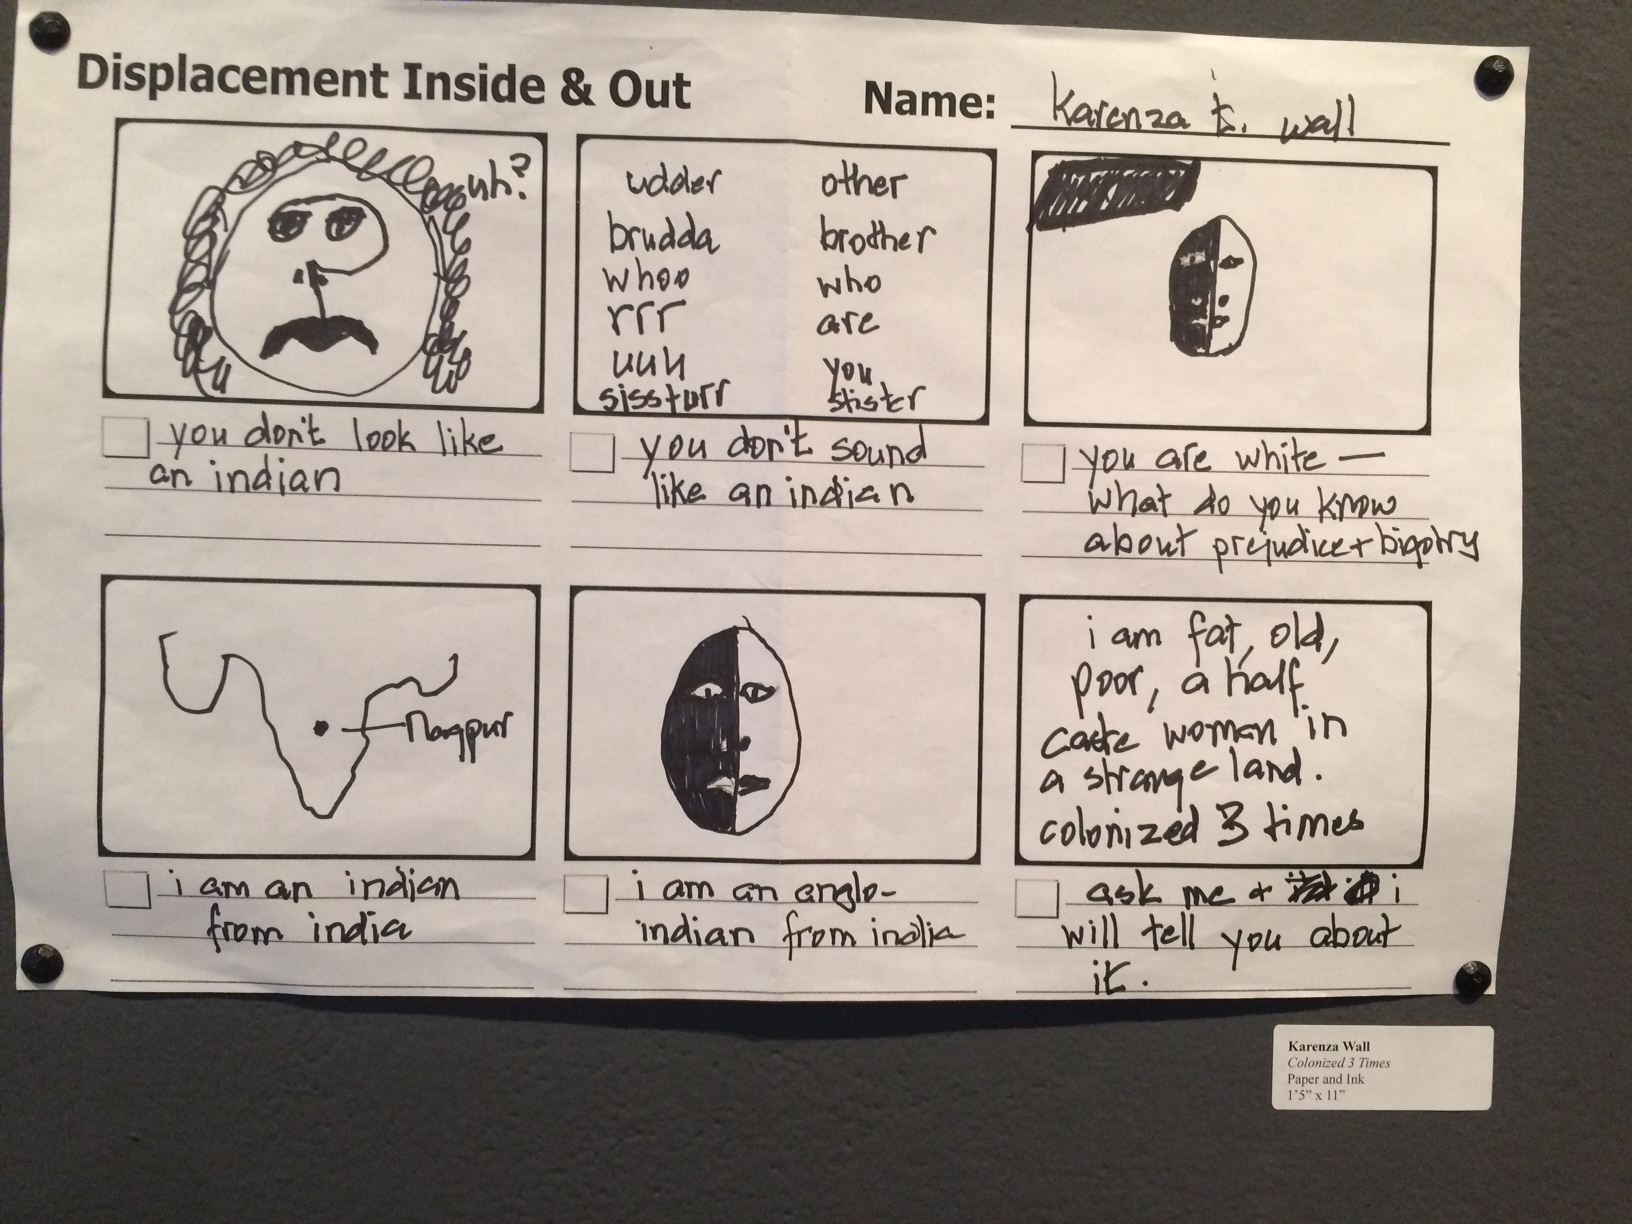 Displacement Inside & Out
Name: Karenza t. wall
uh?
udder other
brudda brother
whoo who
rrr are
uuh you
sissturr sister
you don't look like
an indian
you don't sound
like an indian
you are white —
what do you know
about prejudice + bigotry
Nagpur
i am fat, old,
poor, a half
caste woman in
a strange land.
colonized 3 times
i am an indian
from india
i am an anglo-
indian from india
ask me + i
will tell you about
it.
Karenza Wall
Colonized 3 Times
Paper and Ink
1'5" x 11"